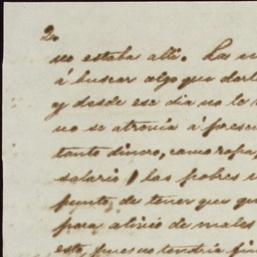 2.
no estaba alli. La
á buscar algo que darle
y desde ese dia no le
no se atrevia á presen
tanto dinero, como ropa,
salario las pobres
punto, de tener que
para alivio de males
esto, pues no tendria fin